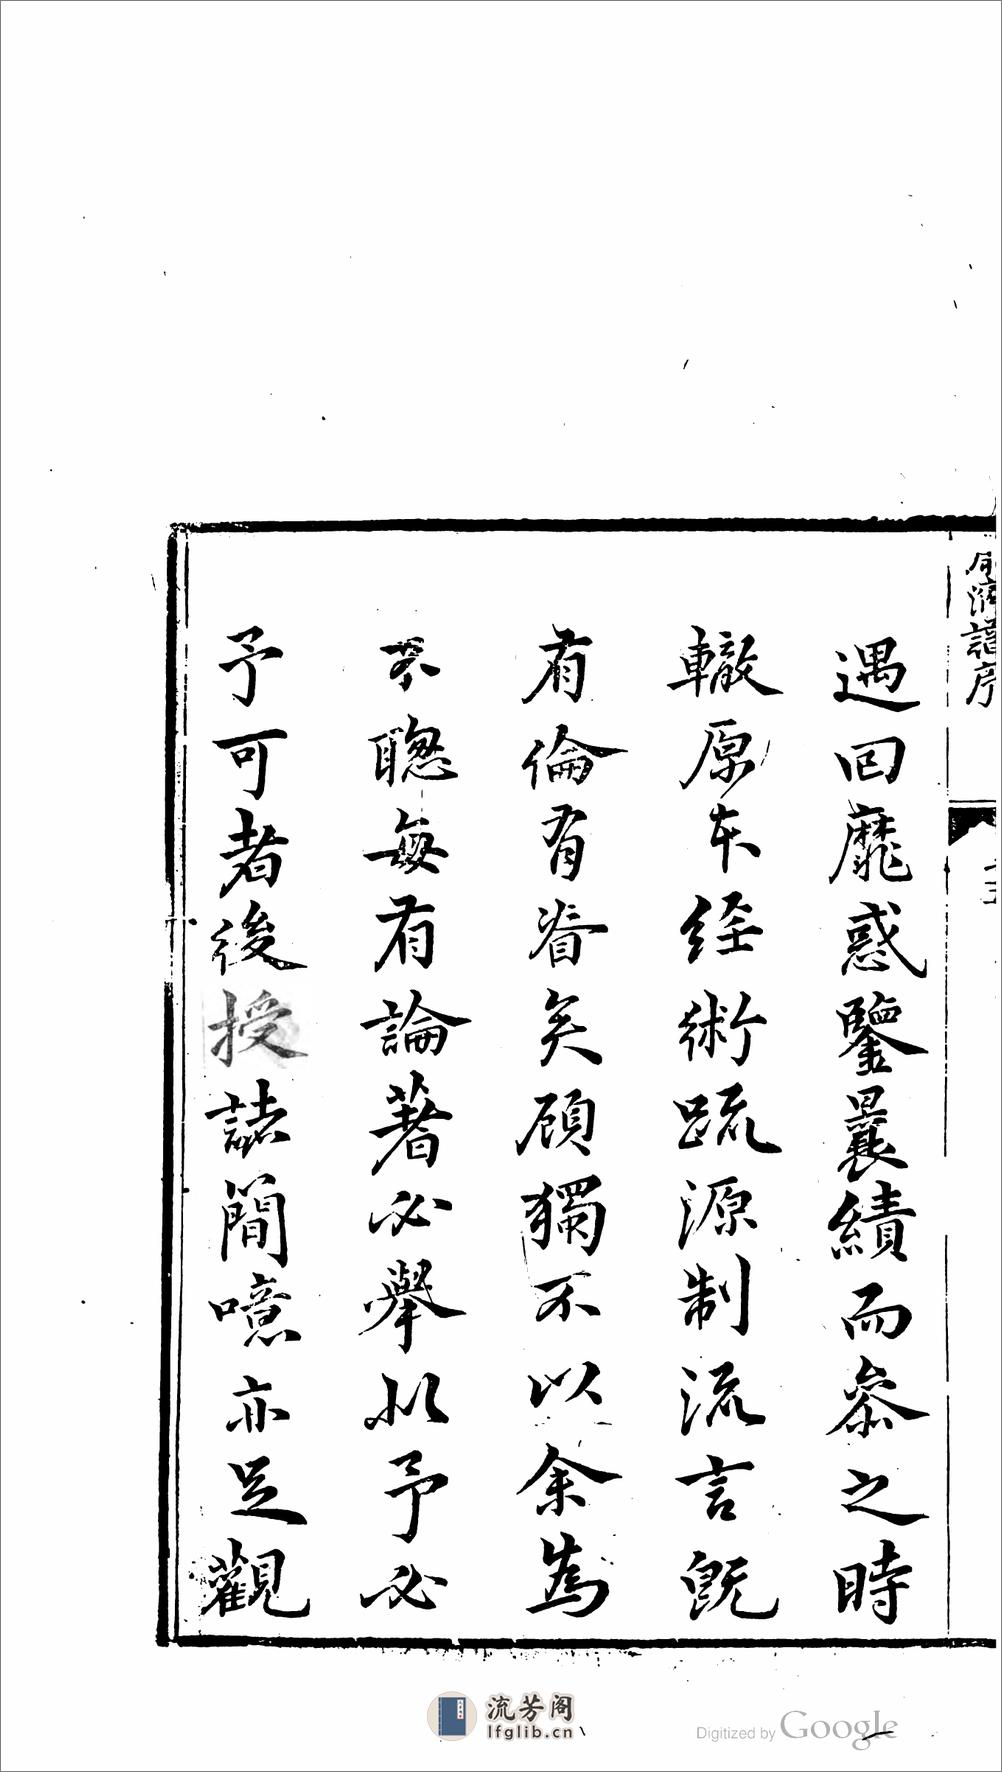 譜序
遇回靡惑鑒曩績而叅之時
轍原本經術疏源制流言既
有倫有脊矣顧獨不以余為
不聰每有論著必舉以予必
予可者後授誌簡噫亦足觀
流芳阁
lfglib.cn
Digitized by Google